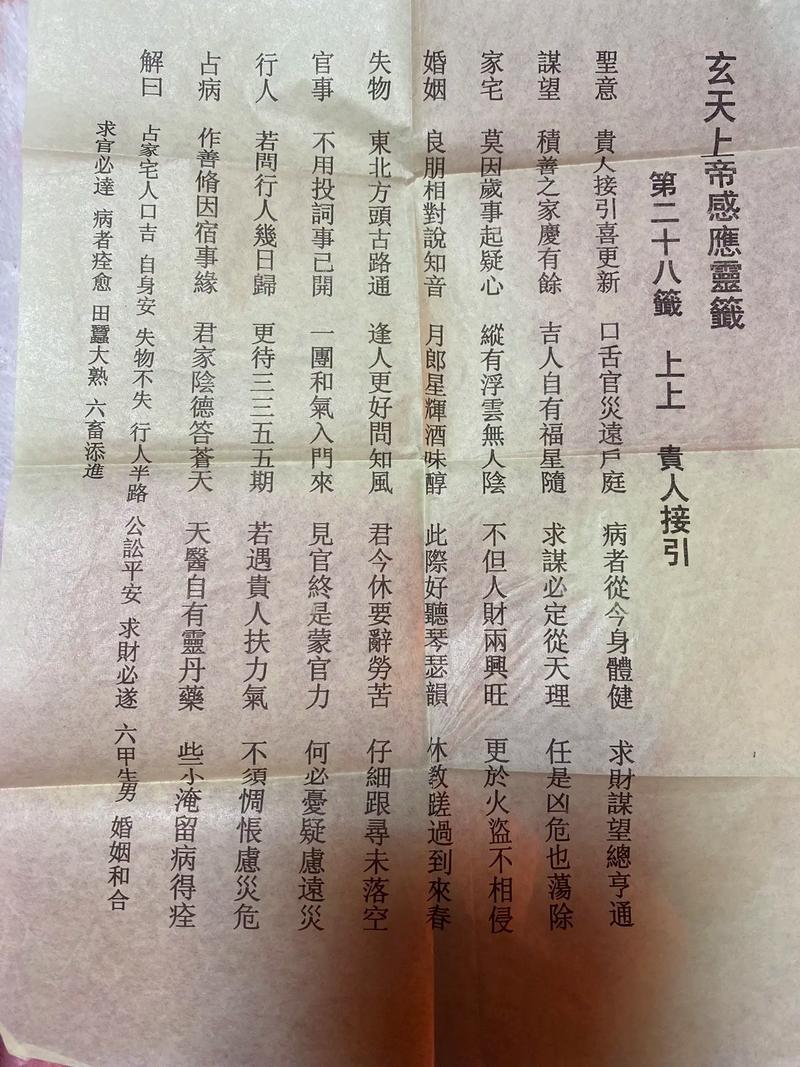 玄天上帝感應靈籤
第二十八籤 上上 貴人接引
聖意 貴人接引喜更新 口舌官災遠戶庭 病者從今身體健 求財謀望總亨通
謀望 積善之家慶有餘 吉人自有福星隨 求謀必定從天理 任是凶危也蕩除
家宅 莫因歲事起疑心 縱有浮雲無人陰 不但人財兩興旺 更於火盜不相侵
婚姻 良朋相對說知音 月郎星輝酒味醇 此際好聽琴瑟韻 休教蹉過到來春
失物 東北方頭古路通 逢人更好問知風 君今休要辭勞苦 仔細跟尋未落空
官事 不用投詞事已開 一團和氣入門來 見官終是蒙官力 何必憂疑慮遠災
行人 若問行人幾日歸 更待三三五五期 若遇貴人扶力氣 不須惆悵慮災危
占病 作善脩因宿事緣 君家陰德答蒼天 天醫自有靈丹藥 些小淹留病得痊
解曰 占家宅人口吉 自身安 失物不失 行人半路 公訟平安 求財必遂 六甲生男 婚姻和合
求官必達 病者痊愈 田蠶大熟 六畜添進